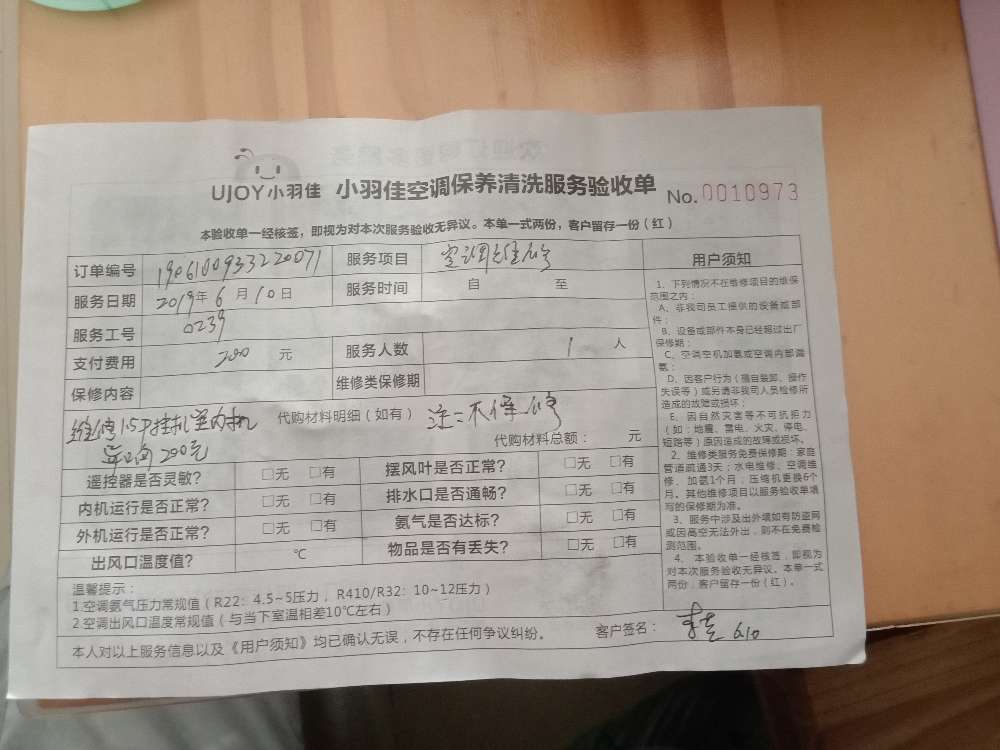 UJOY小羽佳 小羽佳空调保养清洗服务验收单 No.0010973
本验收单一经核签，即视为对本次服务验收无异议。本单一式两份，客户留存一份（红）
订单编号 1906100933220071 服务项目 空调维修
服务日期 2019年 6 月 10 日 服务时间 自 至
服务工号 0239
支付费用 200 元 服务人数 1 人
保修内容 维修类保修期
维修1.5P挂机室内机 代购材料明细（如有） 注：不保修
200元 代购材料总额： 元
遥控器是否灵敏? □无 □有 摆风叶是否正常? □无 □有
内机运行是否正常? □无 □有 排水口是否通畅? □无 □有
外机运行是否正常? □无 □有 氨气是否达标? □无 □有
出风口温度值? ℃ 物品是否有丢失? □无 □有
温馨提示：
1.空调氨气压力常规值（R22：4.5~5压力，R410/R32：10~12压力）
2.空调出风口温度常规值（与当下室温相差10℃左右）
本人对以上服务信息以及《用户须知》均已确认无误，不存在任何争议纠纷。 客户签名： 6.10
用户须知
1、下列情况不在维修项目的维保
范围之内：
A、非我司员工提供的设备或部
件；
B、设备或部件本身已经超过出厂
保修期；
C、空调空机加氨或空调内部漏
氨；
D、因客户行为（擅自装卸、操作
失误等）或另请非我司人员检修所
造成的故障或损坏；
E、因自然灾害等不可抗拒力
（如：地震、雷电、火灾、停电、
短路等）原因造成的故障或损坏。
2、维修类服务免费保修期：家庭
管道疏通3天；水电维修、空调维
修、加氨1个月；压缩机更换6个
月。其他维修项目以服务验收单填
写的保修期为准。
3、服务中涉及出外墙如有防盗网
或因高空无法外出，则不在免费检
测范围。
4、本验收单一经核签，即视为
对本次服务验收无异议。本单一式
两份，客户留存一份（红）。